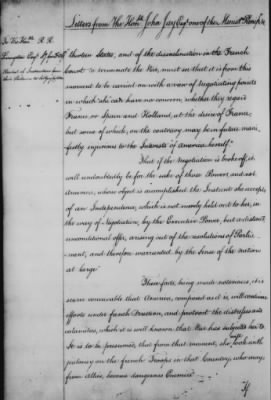 Letters from The Honble John Jay Esqr one of the Minist Plenipo
To the Honble R. R.
Livingston Esqr
thirteen States, and of the disinclination in the French
Court to terminate the War, must in that it is from this
moment to be carried on with a view of negotiating points
in which she can have no concern, whether they regard
France, or Spain and Holland, at the desire of France;
but some of which, on the contrary may be in future mani-
festly injurious to the Interests of America herself.
That if the negotiation is broke off, it
will undoubtedly be for the sake of those Powers, and not
America, whose object is accomplished the Instant she accepts
of an Independence, which is not merely held out to her, in
the way of Negotiation, by the Executive Power, but a distinct
unconditional offer, arising out of the resolutions of Parlia-
ment, and therefore warranted by the Sense of the Nation
at large
These facts, being made notorious, it is
scarce conceivable that America, composed as it is, will continue
efforts under French Direction, and protract the distresses and
calamities, which it is well known that War has subjected her to.
It is to be presumed, that from that moment, she will look with
jealousy on the french Troops in that Country, who may
from Allies, become dangerous Enemies
If